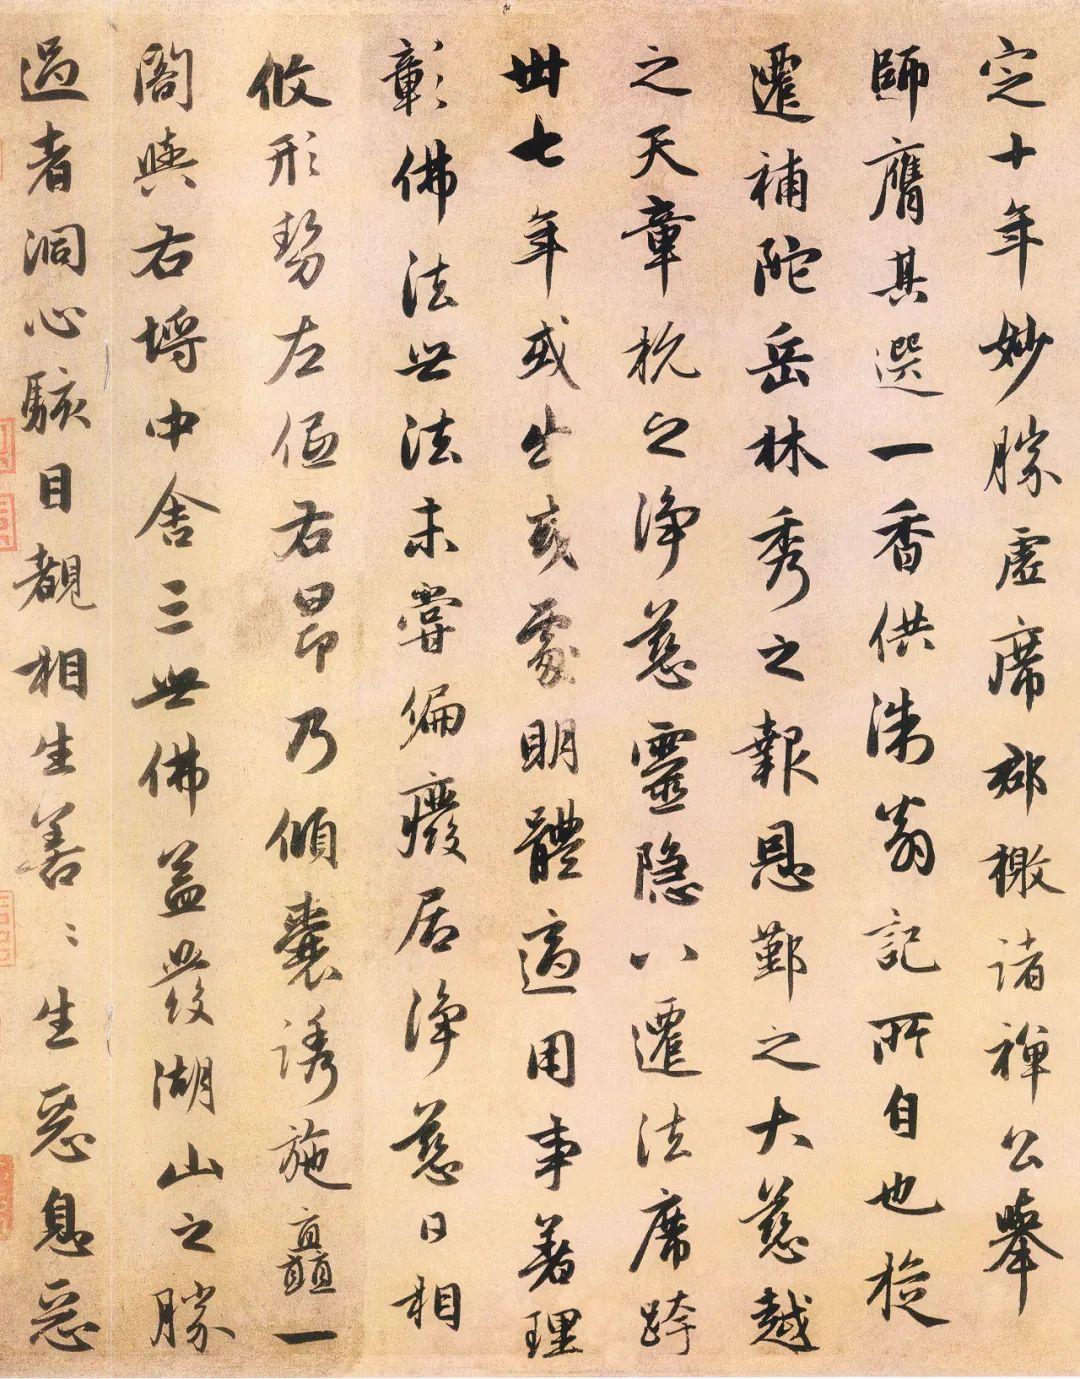 定十年妙勝虛席郡檄諸禪公舉
師膺其選一香供淛翁記所自也旋
遷補陀岳林秀之報恩鄞之大慈越
之天章杭之淨慈靈隱八遷法席跨
卅七年或出或處明體適用事著理
彰佛法世法未嘗偏廢居淨慈日相
攸形勢左傴右昂乃傾囊誘施矗一
閣與右埒中舍三世佛益發湖山之勝
過者洞心駭目覩相生善〻生惡息惡